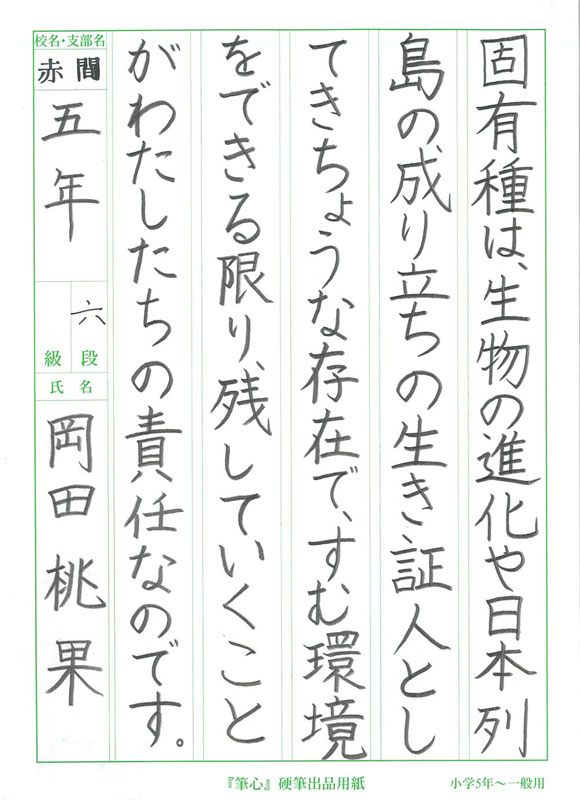 固有種は、生物の進化や日本列
島の成り立ちの生き証人とし
てきちょうな存在で、すむ環境
をできる限り、残していくこと
がわたしたちの責任なのです。
校名・支部名
赤間
五年
六
級 段
氏名
岡田桃果
『筆心』硬筆出品用紙
小学5年〜一般用